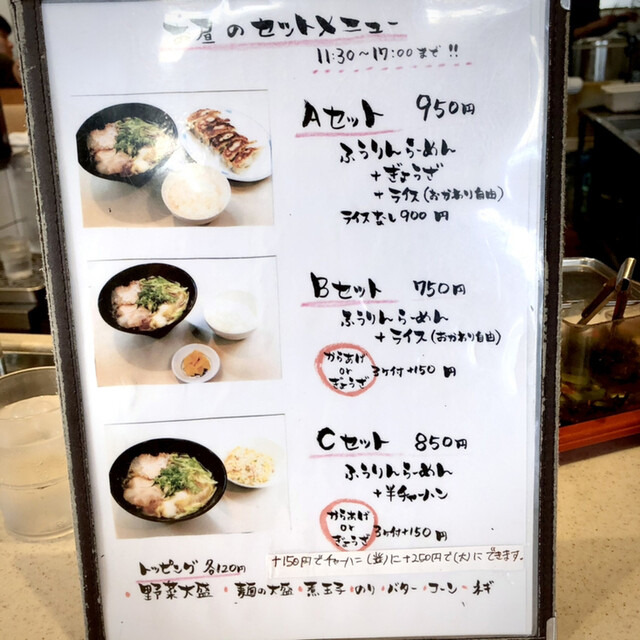 昼のセットメニュー
11:30～17:00まで!!
Aセット 950円
ふうりんらーめん
+ぎょうざ
+ライス(おかわり自由)
ライスなし900円
Bセット 750円
ふうりんらーめん
+ライス(おかわり自由)
からあげ
or
ぎょうざ
3ヶ付+150円
Cセット 850円
ふうりんらーめん
+半チャーハン
からあげ
or
ぎょうざ
3ヶ付+150円
+150円でチャーハン(並)に+250円で(大)にできます。
トッピング 各120円
・野菜大盛・麺の大盛・煮玉子・のり・バター・コーン・ネギ